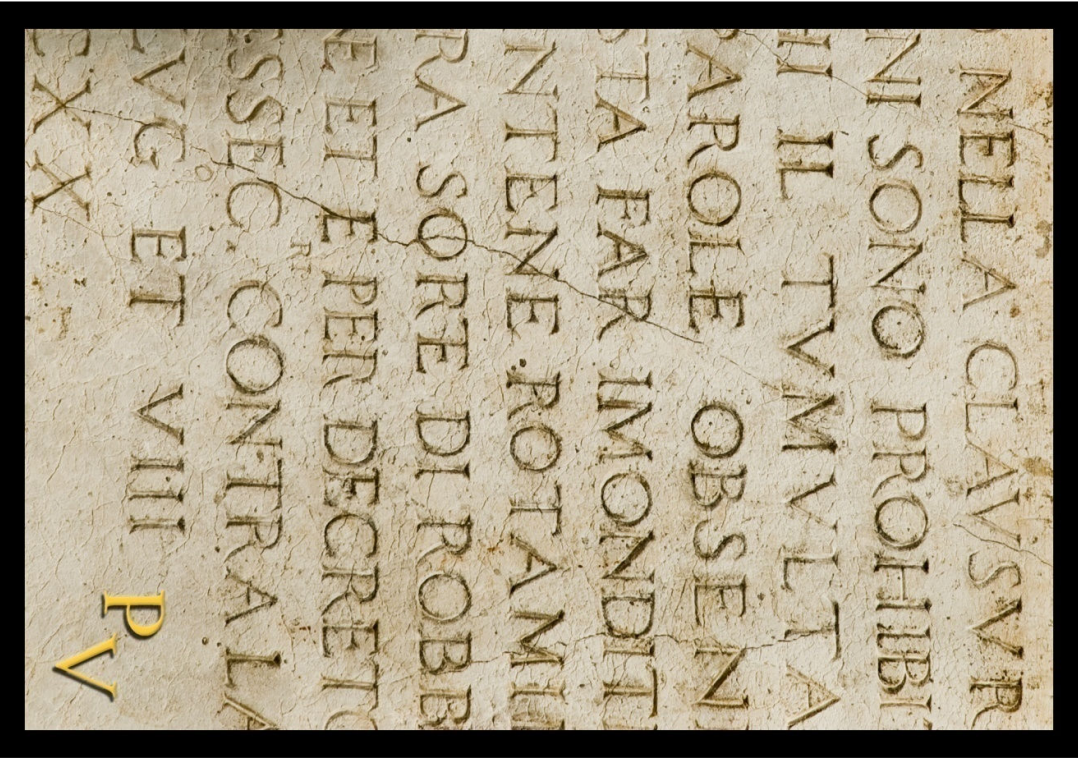 NELLA CLAVSVR
NI SONO PROHIBI
HI IL TVMVLT A
PAROLE OBSEN
STA FAR IMONDIT
NTENE ROTAMI
RA SORE DI ROBB
NE ET E PER DECRETO
ESSEC. RT CONTRAL LA
LVG ET VIII
XX
PV